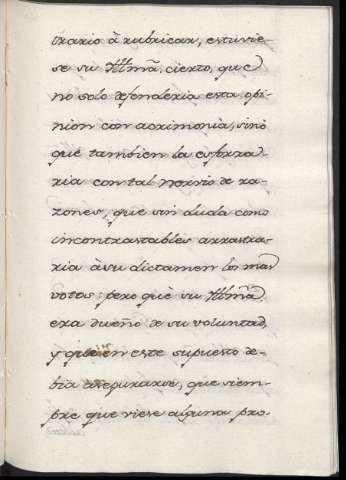 trario à rubricar, estuvie-
se su Illmã. cierto, que
no solo defenderia esta opi-
nion con acrimonia, sinò
que tambien la esforza-
ria con tal nervio de ra-
zones, que sin duda como
incontrastables arrastra-
ria à su dictamen los mas
votos: pero què su Illmã.
era dueño de su voluntad,
y que en este supuesto de-
bia asegurarse, que siem-
pre que viese alguna pro-